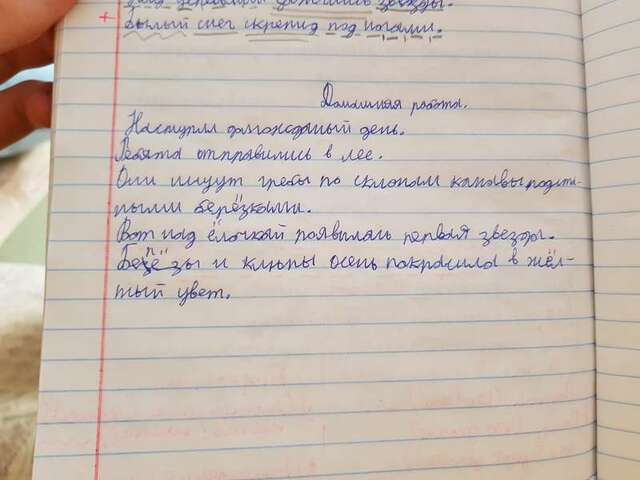 над деревьями зажглись звёзды.
Белый снег скрепид под ногами.
Домашняя работа.
Наступил долгожданый день.
Ребята отправились в лес.
Они ищут грибы по склонам канавы под ста-
рыми берёзками.
Вот над ёлочкай появилась первая звезда.
Берёзы и клёны осень покрасила в жёл-
тый цвет.